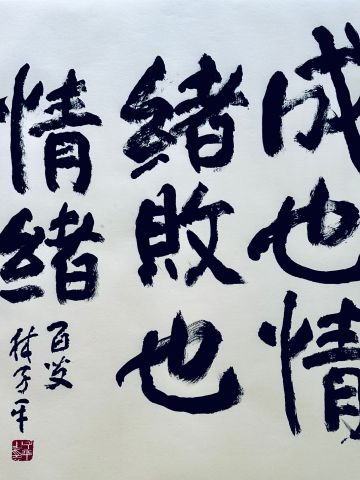 成也情
緒敗也
情緒
百叟
林子平